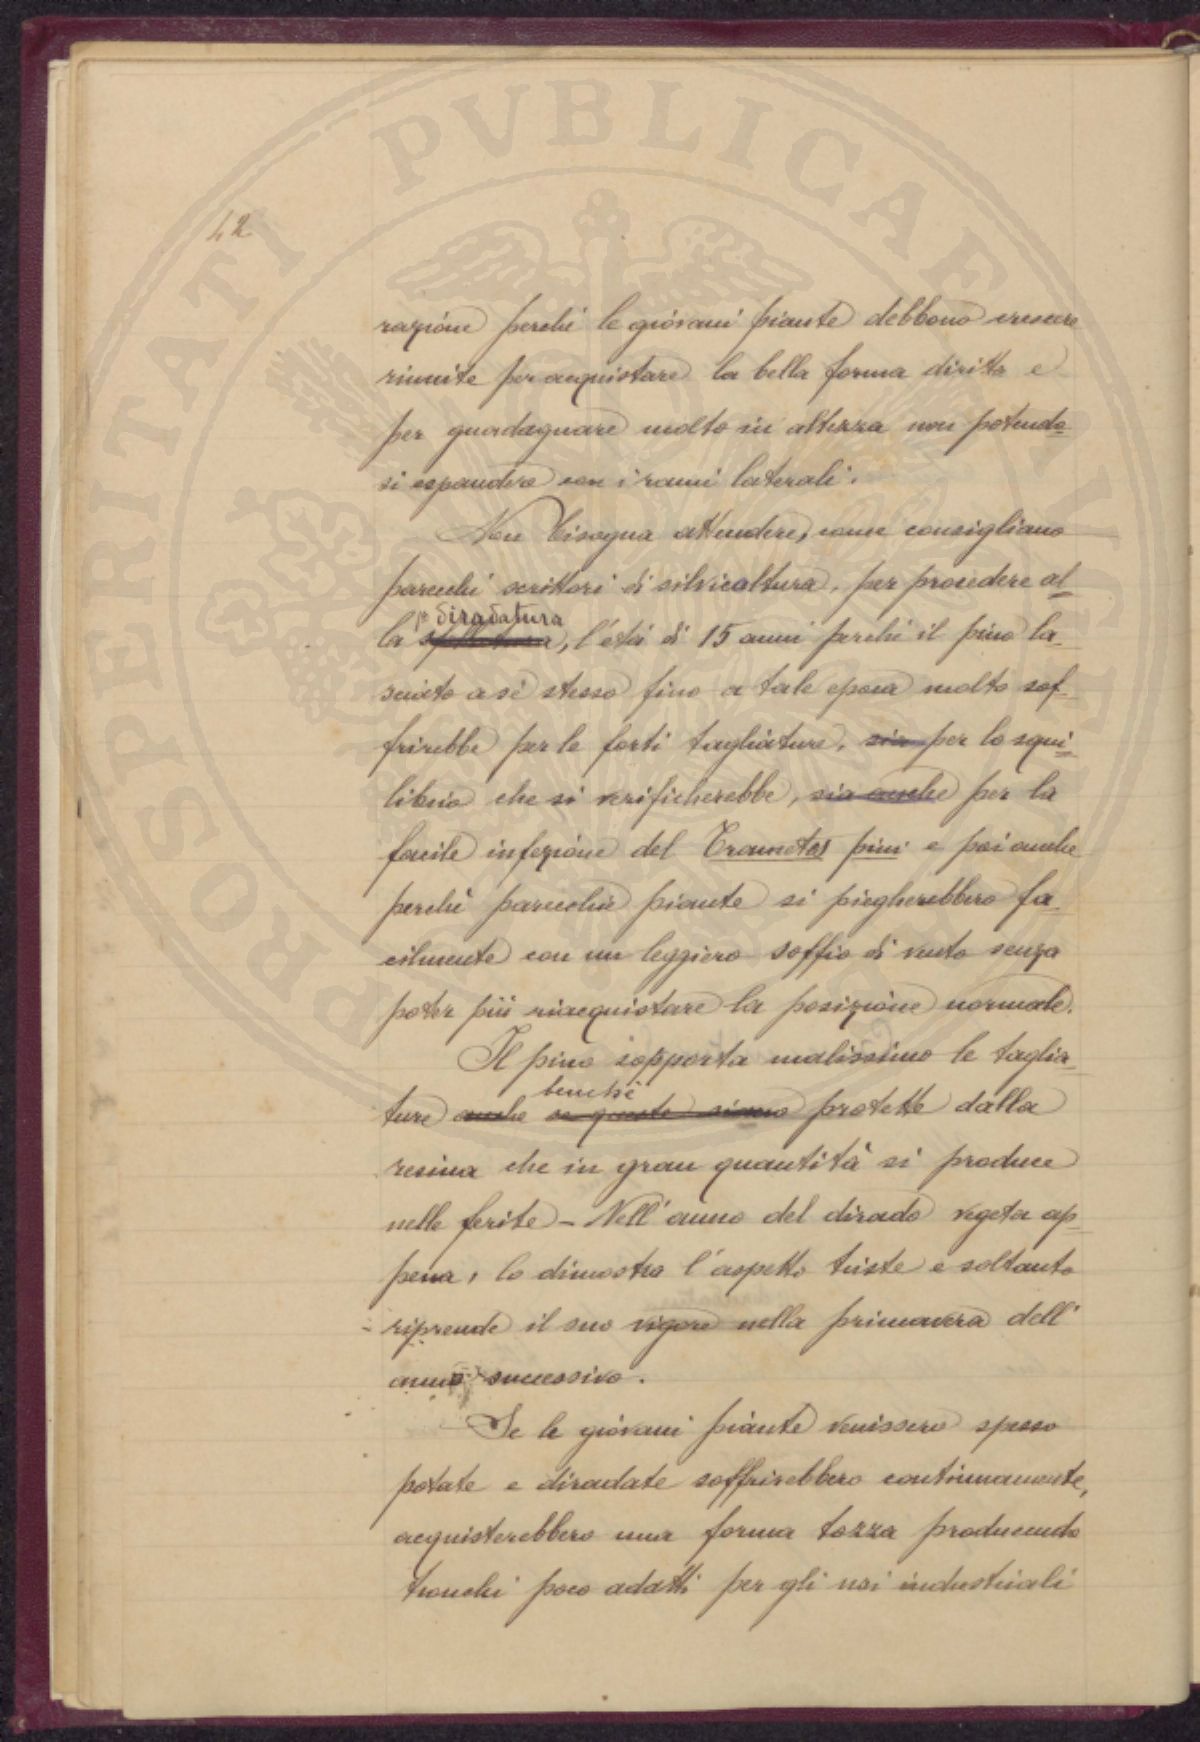 PROSPERITATI PVBLICAE AVGENDAE
42
razione perchè le giovani piante debbono crescere
riunite per acquistare la bella forma diritta e
per guadagnare molto in altezza non potendo
si espandere con i rami laterali.
Non bisogna attendere, come consigliano
parecchi scrittori di silvicoltura, per procedere al
1ª diradatura
la sfollatura, l'età di 15 anni perchè il pino la-
sciato a sè stesso fino a tale epoca molto sof-
frirebbe per le forti tagliature, sia per lo squi-
librio che si verificherebbe, sia anche per la
facile infezione del Trametes pini e poi anche
perchè parecchie piante si piegherebbero fa-
cilmente con un leggiero soffio di vento senza
poter più riacquistare la posizione normale.
Il pino sopporta malissimo le taglia-
benchè
ture anche se queste siano protette dalla
resina che in gran quantità si produce
nelle ferite - Nell'anno del dirado vegeta ap-
pena, lo dimostra l'aspetto triste e soltanto
riprende il suo vigore nella primavera dell'
anno successivo.
Se le giovani piante venissero spesso
potate e diradate soffrirebbero continuamente,
acquisterebbero una forma tozza producendo
tronchi poco adatti per gli usi industriali